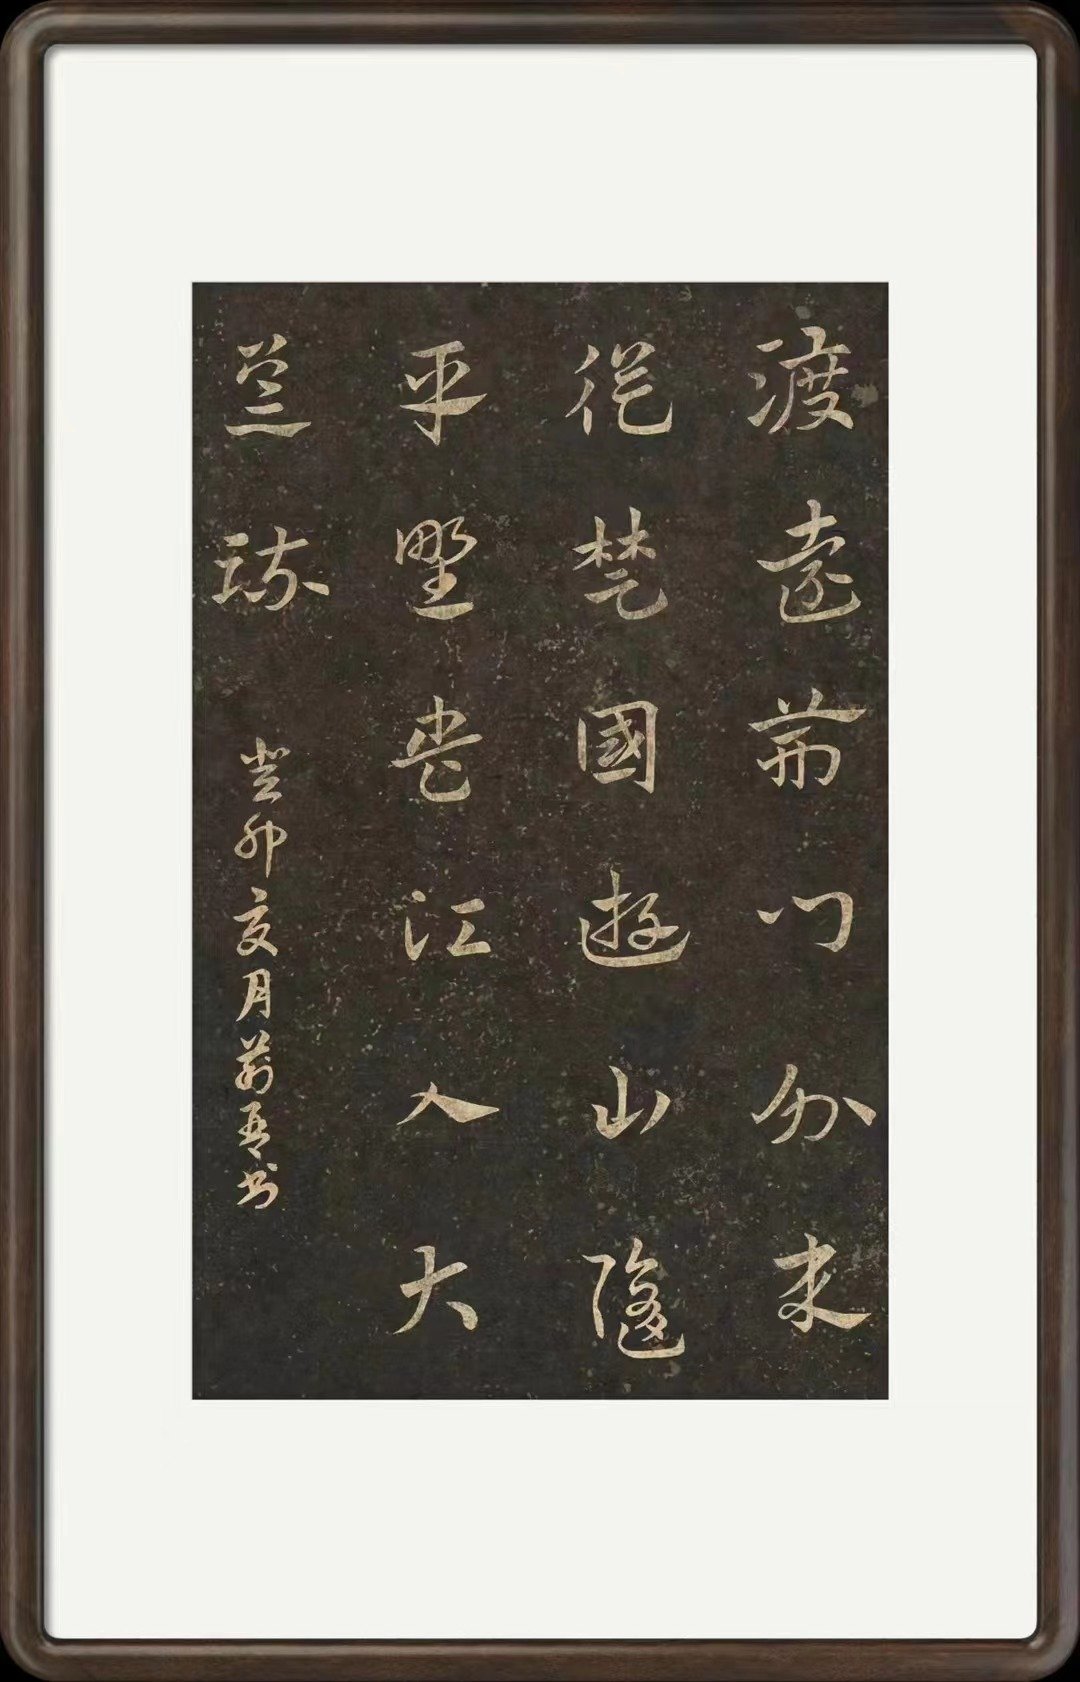 渡遠荊門外来
從楚國遊山隨
平野盡江入大
荒流
癸卯亥月吾书